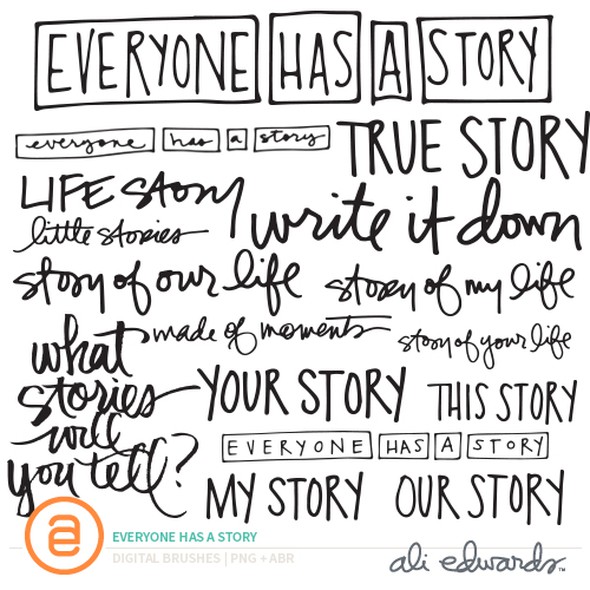 EVERYONE HAS A STORY
everyone has a story
TRUE STORY
LIFE story
write it down
little stories
story of our life
story of my life
what
stories
will
you tell?
made of moments
story of your life
YOUR STORY
THIS STORY
EVERYONE HAS A STORY
MY STORY
OUR STORY
ae
EVERYONE HAS A STORY
DIGITAL BRUSHES | PNG + ABR
ali edwards™